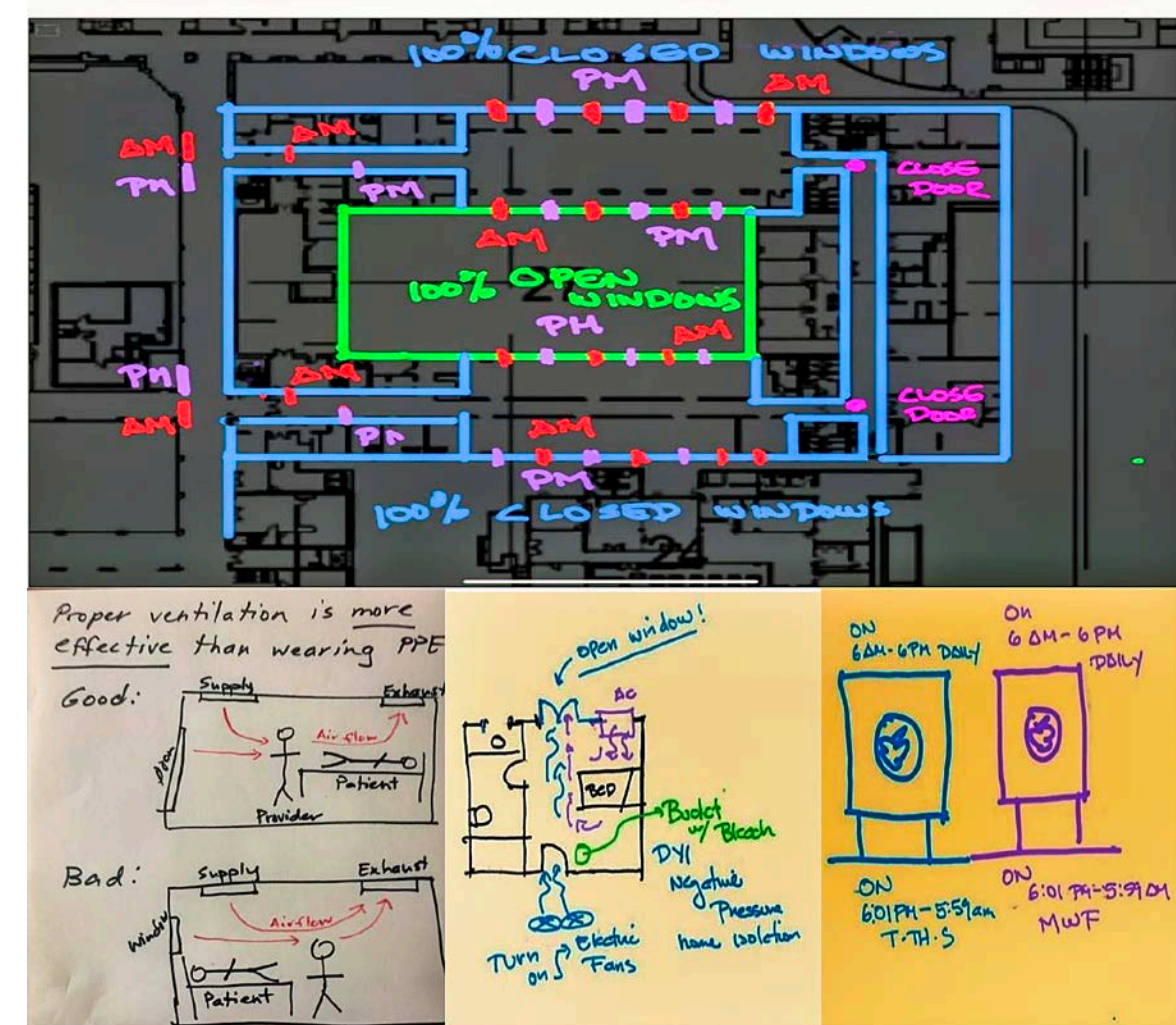 100% CLOSED WINDOWS
PM
AM
AM
PM
AM
PM
CLOSE
DOOR
AM
PM
100% OPEN
WINDOWS
PM
AM
PM
AM
AM
PM
AM
PM
CLOSE
DOOR
100% CLOSED WINDOWS
Proper ventilation is more
effective than wearing PPE
Good:
Supply
Exhaust
Air flow
Patient
Provider
Bad:
Supply
Exhaust
Airflow
Window
Patient
open window!
AC
BED
Bucket
w/ Bleach
DYI
Negative
Pressure
home isolation
Turn
on
Electric
Fans
ON
6AM-6PM DAILY
On
6AM-6PM
DAILY
ON
6:01PM-5:59am
T.TH.S
ON
6:01PM-5:59AM
MWF